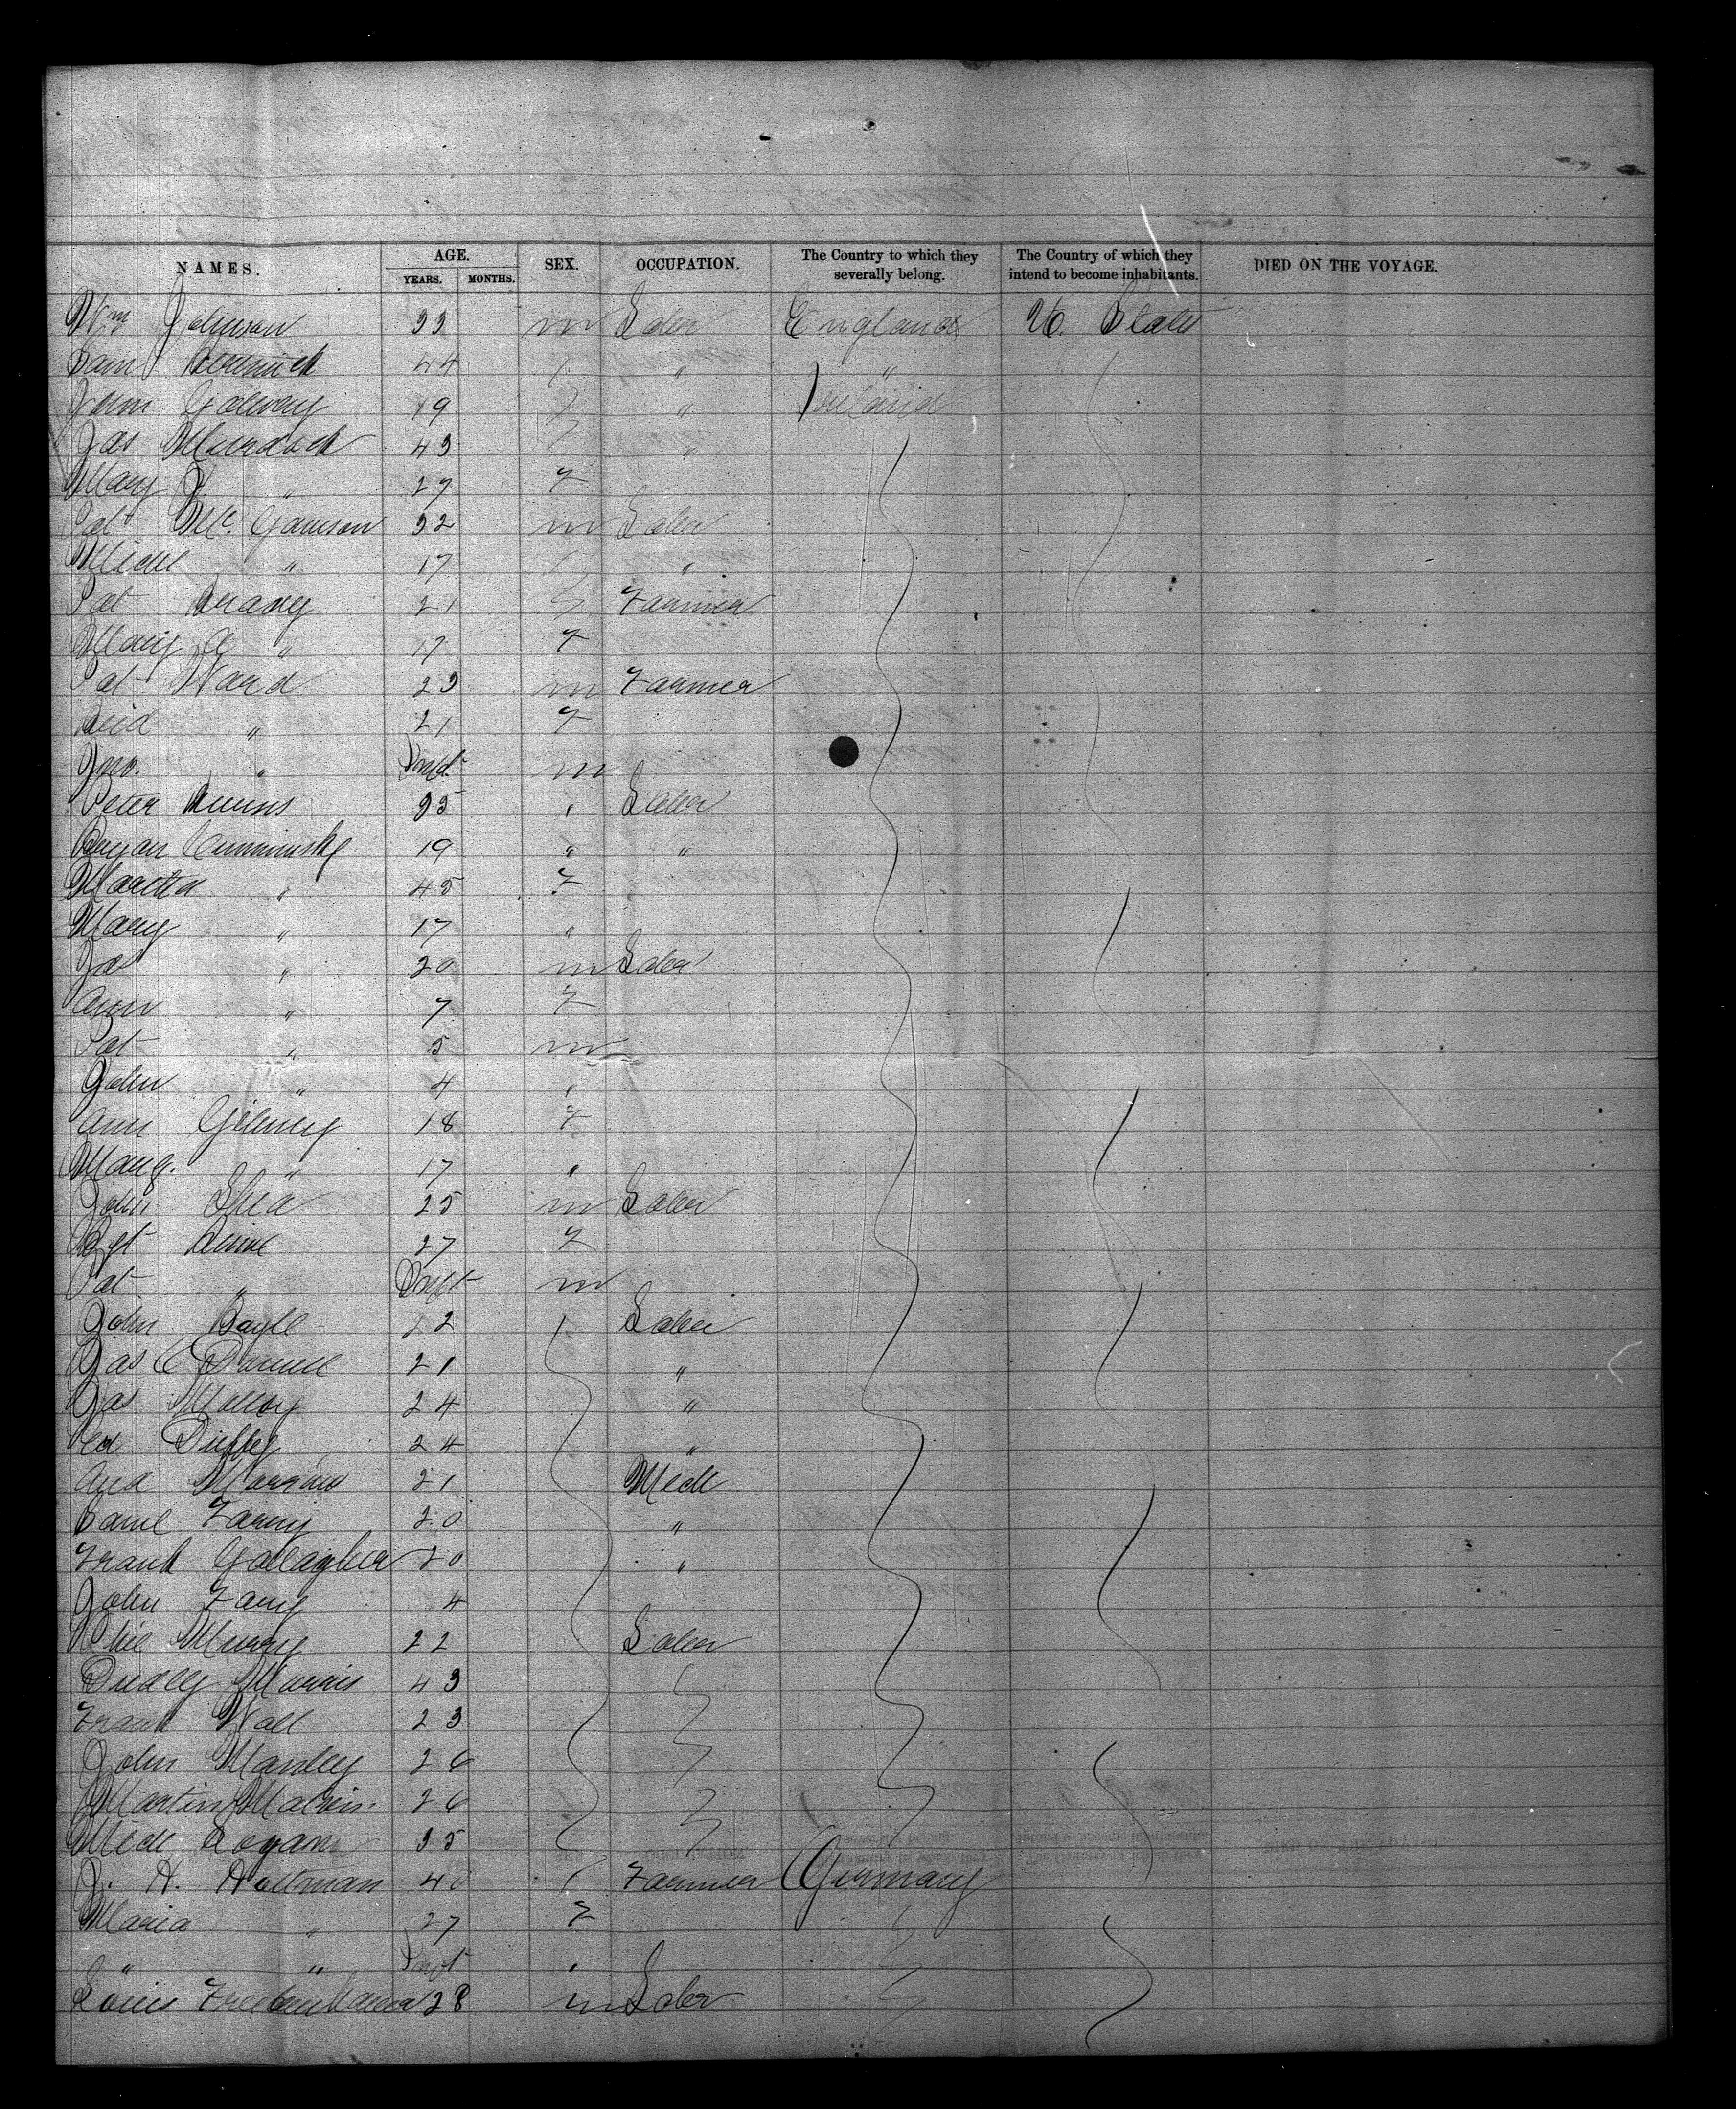 NAMES. AGE. SEX. OCCUPATION. The Country to which they severally belong. The Country of which they intend to become inhabitants. DIED ON THE VOYAGE.
YEARS. MONTHS.
Wm Johnson 33 m Labr England U. State
Saml 44 " " "
19 " " Ireland
Jas Murdock 43 " "
Mary J. " 27 F
Pat Mc. 32 m Labr
Michl " 17 " "
Pat Brady 21 " Farmer
Mary A " 17 F
Pat Ward 23 m Farmer
" 21 F
Jno. " Inft m
Peter Burns 35 " Labr
Bryan Cumminsky 19 " "
Martha " 45 F
Mary " 17 "
Jas " 20 m Labr
Ann " 7 F
Pat " 5 m
John " 4 "
Ann 18 F
Marg. " 17 "
John Shea 25 m Labr
Bgt 27 F
Pat " Inft m
John Boyle 22 Labr
Jas 21 "
Jas Malloy 24 "
Ed Duffey 24 "
And 21 Mech
20 "
Frank Gallagher 20 "
John 4
Phil Murry 22 Labr
Dudly Morris 43
Frank Wall 23
John Manley 26
Martin 26
Mich Logan 35
J. H. Holtman 40 " Farmer Germany
Maria " 27 F
" " Inft "
Louis 28 m Labr